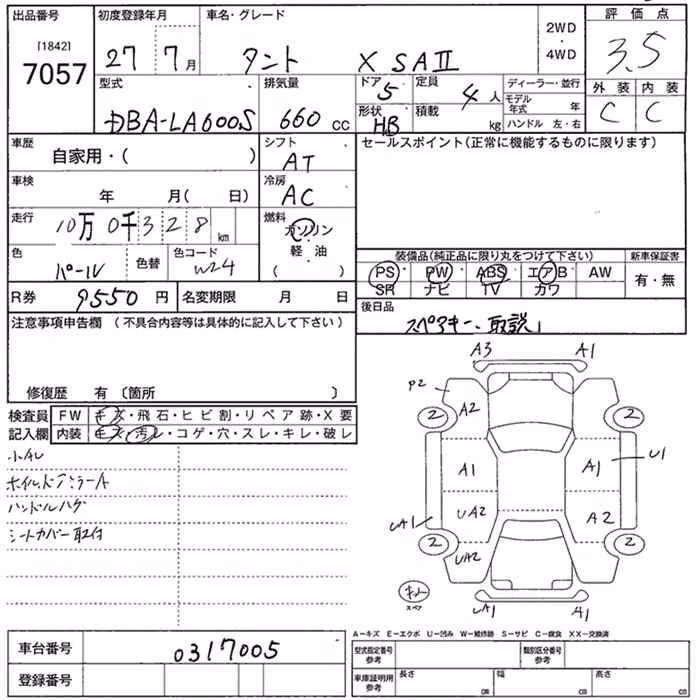 出品番号 初度登録年月 車名・グレード 2WD・4WD 評価点
[1842]
7057 27 7月 タント X SAⅡ 3.5
型式 排気量 ドア 5 定員 4人 ディーラー・並行 外装 内装
DBA-LA600S 660 CC 形状 HB 積載 kg モデル年式 年 C C
ハンドル 左・右
車歴 自家用・( ) シフト AT セールスポイント(正常に機能するものに限ります)
車検 年 月( 日) 冷房 AC
走行 10万0千328km 燃料 ガソリン・軽・油 ( )
色 パール 色替 色コード W24
装備品(純正品に限り丸をつけて下さい) 新車保証書
PS PW ABS エアB AW 有・無
SR ナビ TV カワ
R券 9550円 名変期限 月 日 後日品
スペアキー、取説1
注意事項申告欄 (不具合内容等は具体的に記入して下さい)
修復歴 有 〔箇所 〕
検査員 FW キズ・飛石・ヒビ割・リペア跡・X要
記入欄 内装 キズ・汚レ・コゲ・穴・スレ・キレ・破レ
ハンドルハゲ
シートカバー取付
A3 A1
P2 A2
2 2
A1 A1 U1
UA1 UA2 A2
2 2
UA2
スペア
UA1 A1
A−キズ E−エクボ U−凹み W−補修跡 S−サビ C−腐食 XX−交換済
車台番号 0317005 型式指定番号 参考 類別区分番号 参考
登録番号 車庫証明用 参考 長さ cm 幅 cm 高さ cm